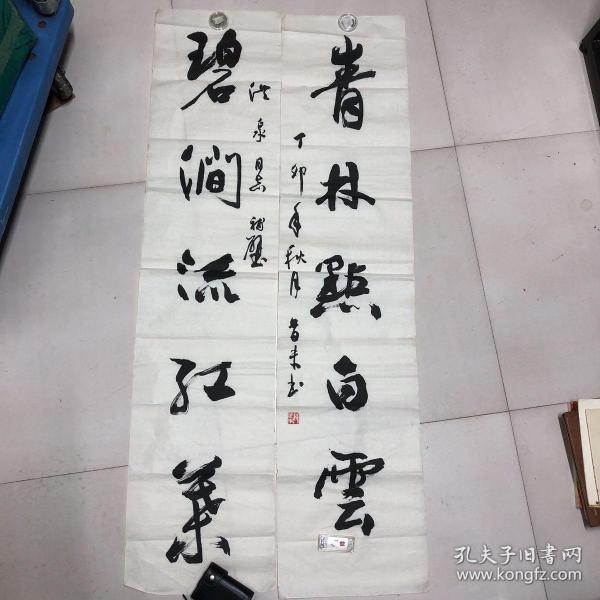 青林點白雲
丁卯年秋月
洪泉同志補壁
碧澗流紅葉
孔夫子旧书网
www.kongfz.com